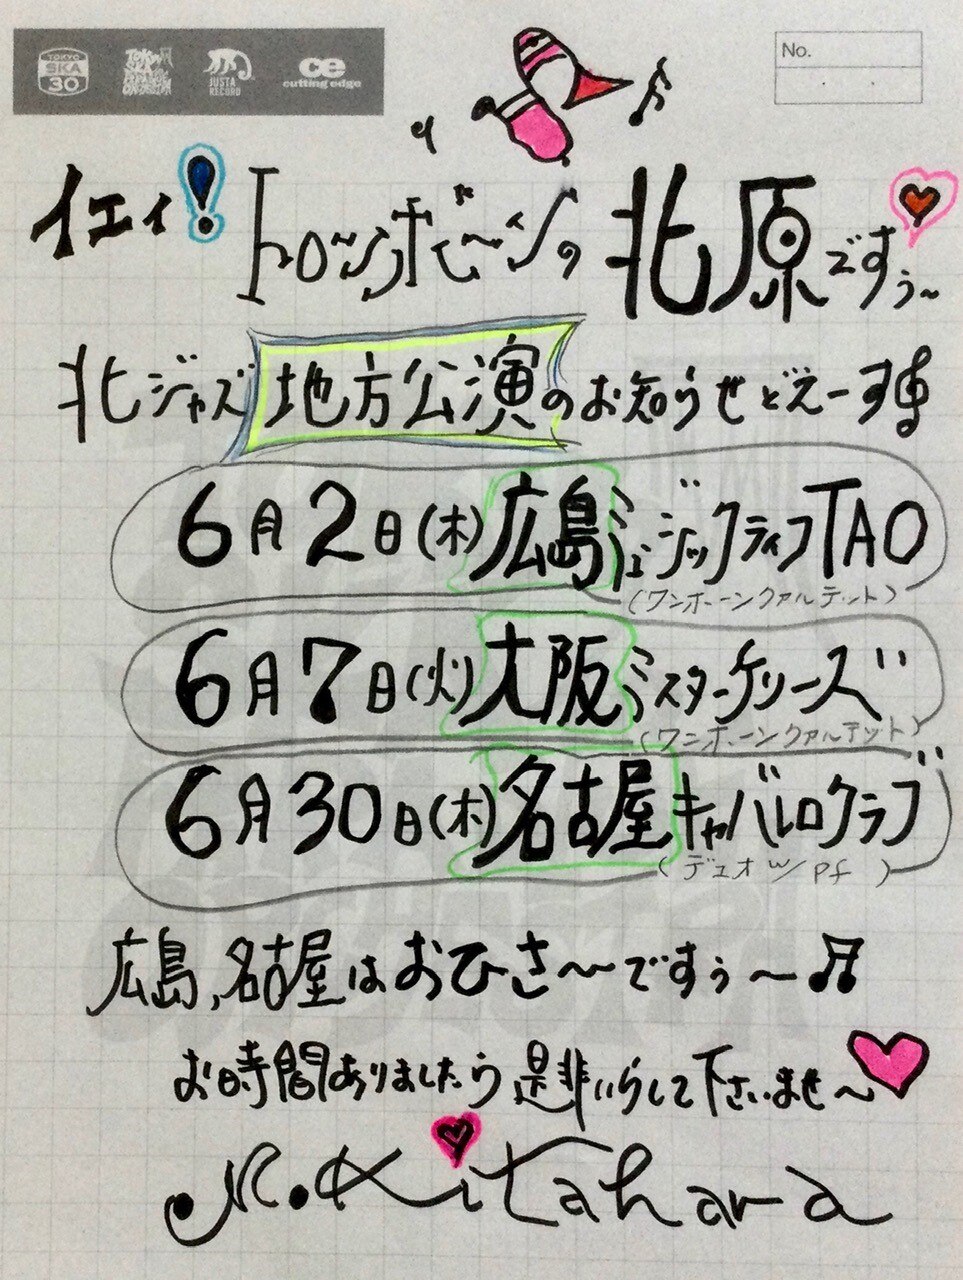 TOKYO SKA 30
TOKYO SKA PARADISE ORCHESTRA
JUSTA RECORD
cutting edge
No.
イエィ! トロンボーンの北原ですぅ~
北ジャズ地方公演のお知らせどえーす
6月2日(木)広島ミュージックライフTAO
(ワンホーンクァルテット)
6月7日(火)大阪ミスターケリーズ
(ワンホーンクァルテット)
6月30日(木)名古屋キャバレロクラブ
(デュオw/pf)
広島,名古屋はおひさ〜〜ですぅ〜♬
お時間ありましたら是非いらして下さいませ〜
N.Kitahara